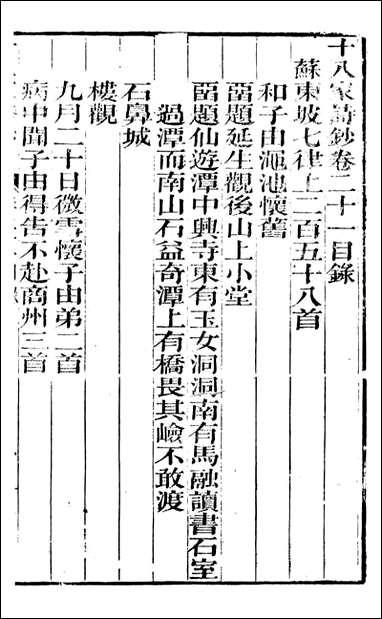 十八家詩鈔卷二十一目錄
蘇東坡七律上二百五十八首
和子由澠池懷舊
畱題延生觀後山上小堂
畱題仙遊潭中興寺東有玉女洞洞南有馬融讀書石室
過潭而南山石益奇潭上有橋畏其嶮不敢渡
石鼻城
樓觀
九月二十日微雪懷子由弟二首
病中聞子由得告不赴商州三首